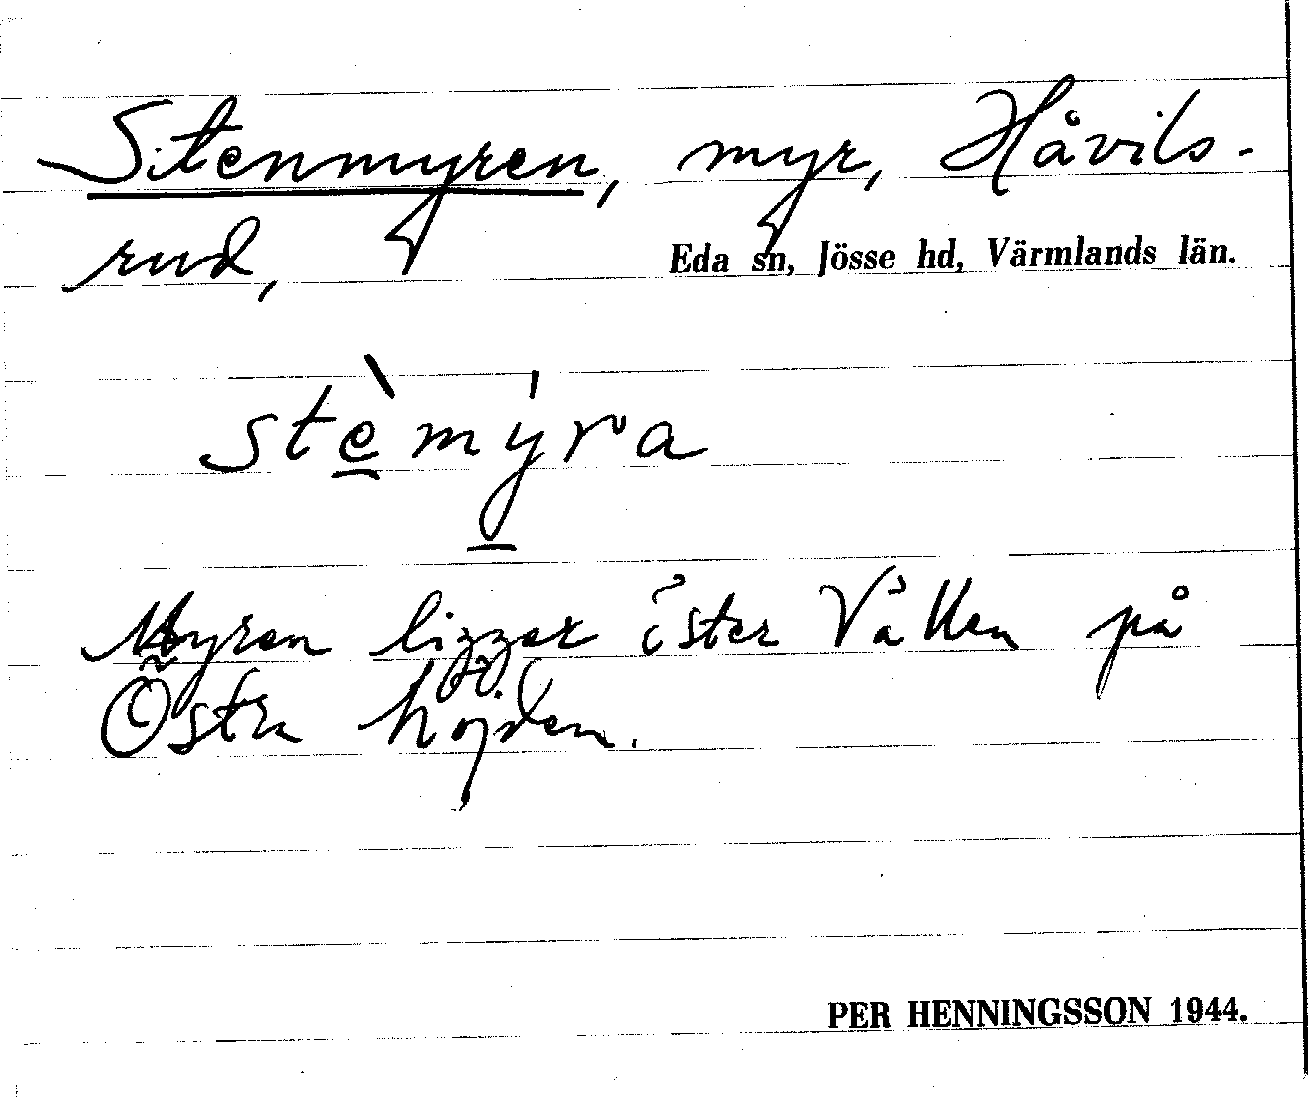 Stenmyren, myr, Håvils-
rud,
Eda sn, Jösse hd, Värmlands län.
stè̠mý̠ra
Myren ligger öster Vållen på
Östra höjden.
PER HENNINGSSON 1944.